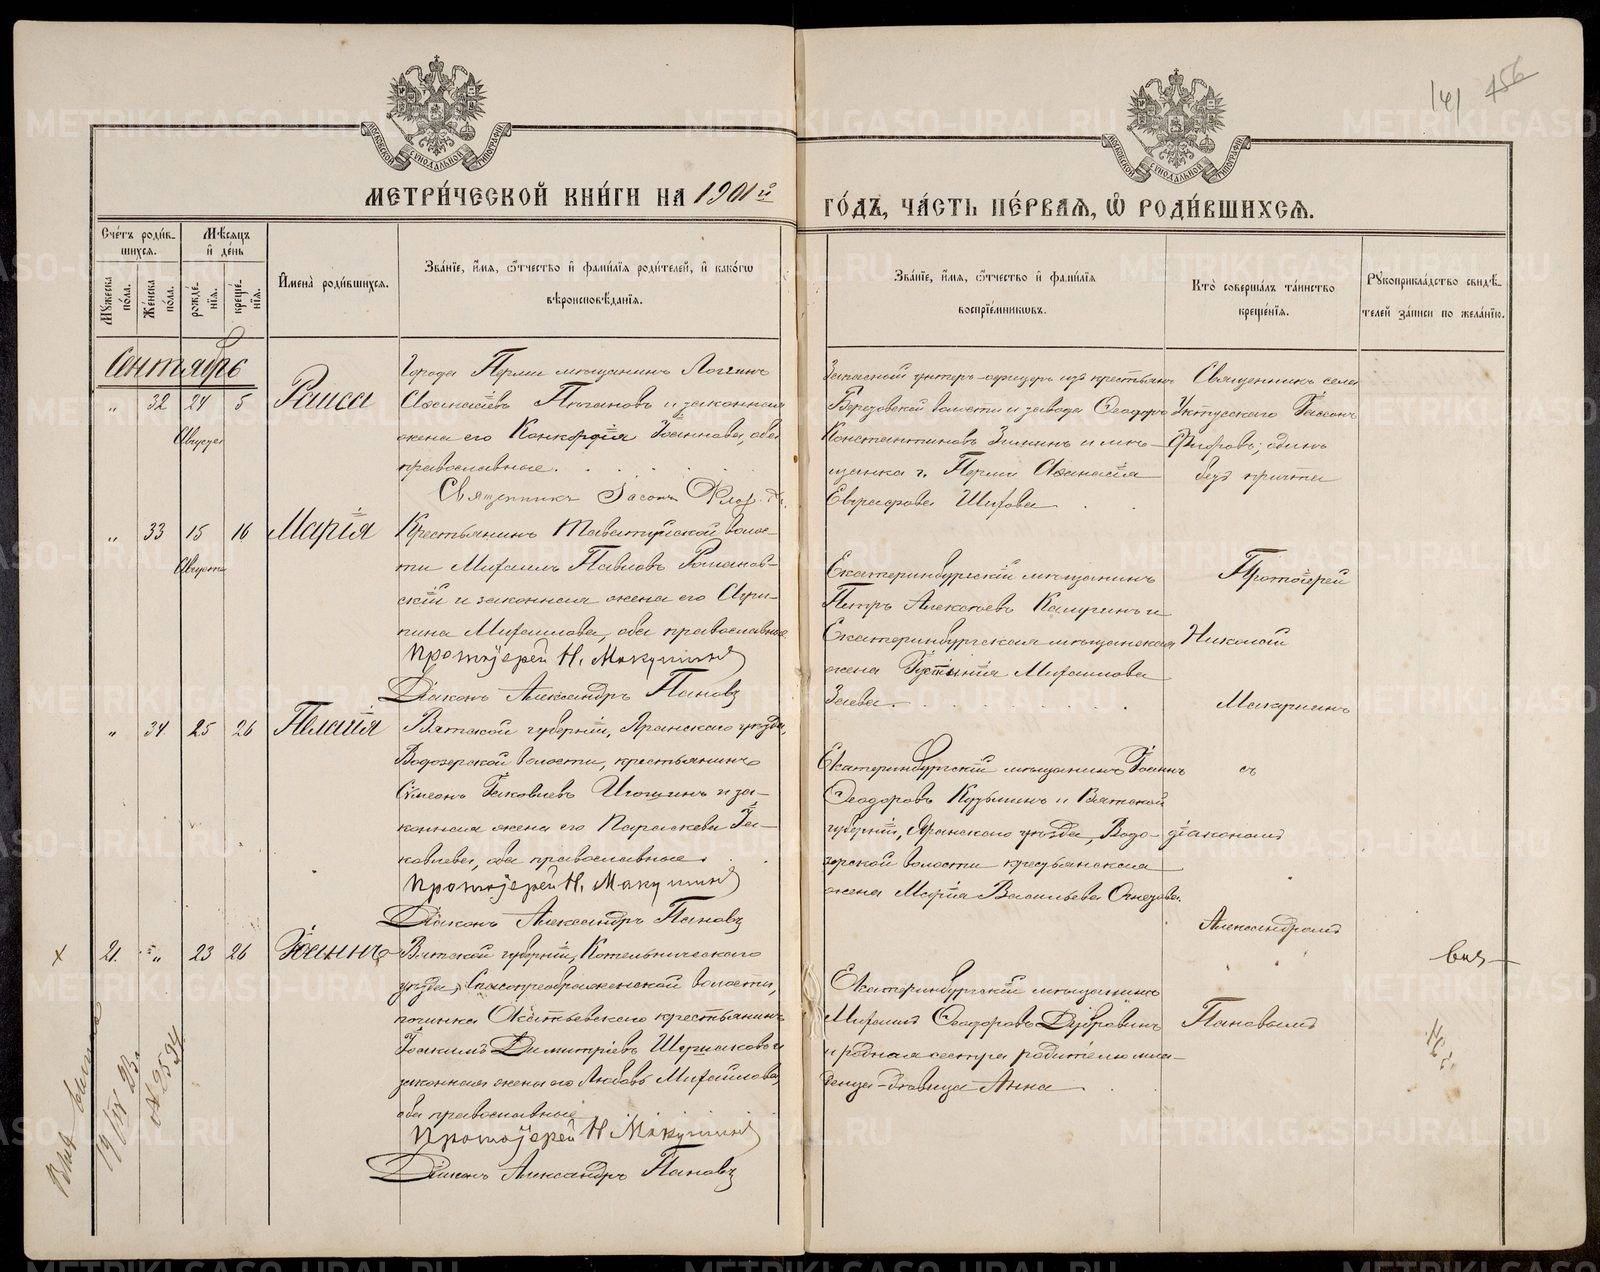 141 156
МОСКОВСКОЙ СѴНОДАЛЬНОЙ ТИПОГРАФІИ
МОСКОВСКОЙ СѴНОДАЛЬНОЙ ТИПОГРАФІИ
МЕТРИ́ЧЕСКОЙ КНИ́ГИ НА 1901й
ГО́ДЪ, ЧА́СТЬ ПЕ́РВАЯ, Ѡ҆ РОДИ́ВШИХСЯ.
Сче́тъ роди́в-
шихся.
Мꙋжеска по́ла.
Же́нска по́ла.
Мѣ́сяцъ и҆ де́нь
рожде́нїя.
креще́нїя.
И҆мена̀ роди́вшихся.
Зва́нїе, и҆́мя, ѻ҆́тчество и҆ фами́лїя роди́телей, и҆ како́гѡ
вѣроисповѣ́данїя.
Зва́нїе, и҆́мя, ѻ҆́тчество и҆ фами́лїя
воспрїе́мникѡвъ.
Кто̀ соверша́лъ та́инство
креще́нїя.
Рꙋкоприкла́дство свидѣ́-
телей за́писи по жела́нїю.
Сентябрь
„ 32 24 5 Раиса
Августа
Города Перми мѣщанинъ Логгинъ
Аѳанасіевъ Пюгановъ и законная
жена его Конкордія Іоаннова, оба
православные.
Священникъ Іасонъ
Запасный унтеръ-офицеръ изъ крестьянъ
Березовской волости и завода Ѳеодоръ
Константиновъ Зыкинъ и мѣ-
щанка г. Перми Аѳанасія
Евграфова Шитова
Священникъ села
Уктусскаго Іассонъ
Флоровъ; одинъ
безъ причта
„ 33 15 16 Марія
Августа
Крестьянинъ Таватуйской волос-
ти Михаилъ Павловъ Романов-
скій и законная жена его Агри-
пина Михаилова, оба православные
Протоіерей Н. Макушинъ
Діаконъ Александръ Пановъ
Екатеринбургскій мѣщанинъ
Петръ Алексѣевъ Калугинъ и
Екатеринбургская мѣщанская
жена Іустинія Михаилова
Заева
Протоіерей
Николай
Макушинъ
„ 34 25 26 Пелагія
Вятской губерніи, Яранскаго уѣзда,
Водозерской волости, крестьянинъ
Сѵмеонъ Іаковлевъ Игошинъ и за-
конная жена его Параскева Іа-
ковлева, оба православные.
Протоіерей Н. Макушинъ
Діаконъ Александръ Пановъ
Екатеринбургскій мѣщанинъ Іоаннъ
Ѳеодоровъ Кузьминъ и Вятской
губерніи, Яранскаго уѣзда, Водо-
зерской волости крестьянская
жена Марія Васильева
съ
діакономъ
Александромъ
Пановымъ
+ 21. „ 23 26 Іоаннъ
Вятской губерніи, Котельническаго
уѣзда, Спасопреображенской волости,
починка крестьянинъ
Іоакимъ Димитріевъ и
законная жена его Любовь Михайлова,
оба православные
Протоіерей Н. Макушинъ
Діаконъ Александръ Пановъ
Екатеринбургскій мѣщанинъ
Михаилъ Ѳеодоровъ Дубровинъ
и родная сестра родителю мла-
денца-дѣвица Анна
19/IV 23.
№ 2534